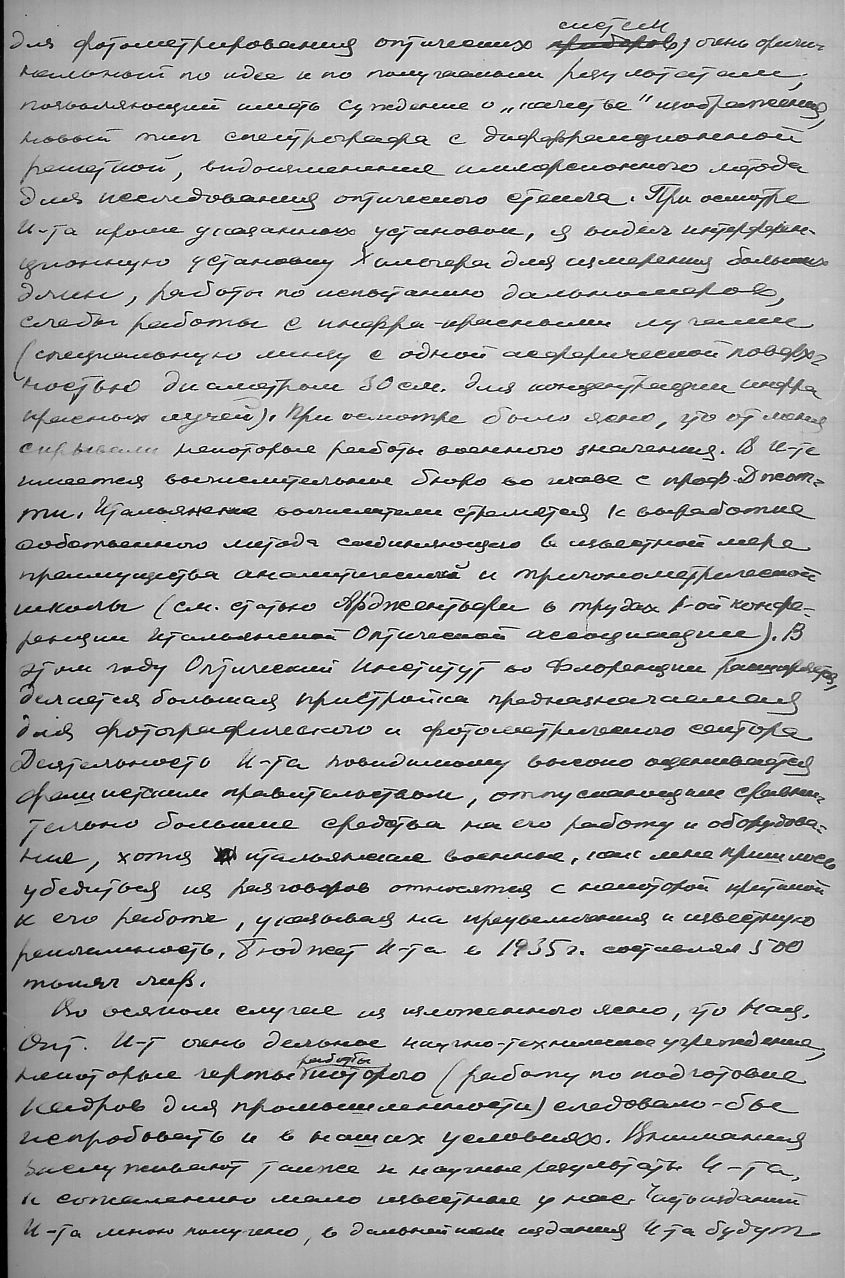 для фотометрирования оптических систем приборов, очень ориги-
нальный по идее и по получаемым результатам,
позволяющий иметь суждение о „качестве" изображения,
новый тип спектрографа с диффракционной
решеткой, видоизменение иммерсионного метода
для исследования оптического стекла. При осмотре
И-та кроме указанных установок, я видел интерферен-
ционную установку Хильгера для измерения больших
длин, работы по испытанию дальномеров,
следы работы с инфра-красными лучами
(специальную линзу с одной асферической поверх-
ностью диаметром 30 см. для концентрации инфра
красных лучей). При осмотре было ясно, что от меня
скрывали некоторые работы военного значения. В И-те
имеется вычислительное бюро во главе с проф. Джот-
ти. Итальянские вычислители стремятся к выработке
собственного метода соединяющего в известной мере
преимущества аналитической и тригонометрической
школы (см. статью Арджентьери в трудах 1-ой конфе-
ренции Итальянской Оптической ассоциации). В
этом году Оптический Институт во Флоренции расширяется,
делается большая пристройка предназначаемая
для фотографического и фотометрического сектора
Деятельность И-та повидимому высоко оценивается
фашистским правительством, отпускающим сравни-
тельно большие средства на его работу и оборудова-
ние, хотя итальянские военные, как мне пришлось
убедиться из разговоров относятся с некоторой критикой
к его работе, указывая на преувеличения и известную
рекламность. Бюджет И-та в 1935 г. составлял 500
тысяч лир.
Во всяком случае из изложенного ясно, что Нац.
Опт. И-т очень дельное научно-техническое учреждение,
некоторые черты работы которого (работу по подготовке
кадров для промышленности) следовало-бы
испробовать и в наших условиях. Внимания
заслуживают также и научные результаты И-та,
к сожалению мало известные у нас. Часть изданий
И-та мною получено, в дальнейшем издания И-та будут